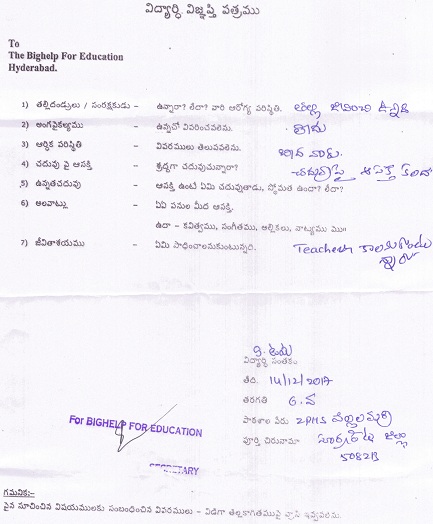 విద్యార్ధి విజ్ఞప్తి పత్రము
To
The Bighelp For Education
Hyderabad.
1) తల్లిదండ్రులు / సంరక్షకుడు - ఉన్నారా? లేదా? వారి ఆరోగ్య పరిస్థితి. తల్లి
2) అంగవైకల్యము - ఉన్నచో వివరించవలెను.
3) ఆర్థిక పరిస్థితి - వివరములు తెలుపవలెను.
4) చదువు పై ఆసక్తి - శ్రద్ధగా చదువుచున్నారా?
5) ఉన్నతచదువు - ఆసక్తి ఉంటే ఏమి చదువుతాడు, స్థోమత ఉందా? లేదా?
6) అలవాట్లు - ఏఏ పనుల మీద ఆసక్తి.
ఉదా - కవిత్వము, సంగీతము, అల్లికలు, నాట్యము మొ॥
7) జీవితాశయము - ఏమి సాధించాలనుకుంటున్నది. Teacher
విద్యార్థి సంతకం
తేది. 14/12/2017
తరగతి 6.వ
పాఠశాల పేరు ZPHS పిల్లలమర్రి
పూర్తి చిరునామా సూర్యాపేట జిల్లా
508213
For BIGHELP FOR EDUCATION
SECRETARY
గమనిక:-
పైన సూచించిన విషయములకు సంబంధించిన వివరములు - విడిగా తెల్లకాగితముపై వ్రాసి ఇవ్వవలెను.